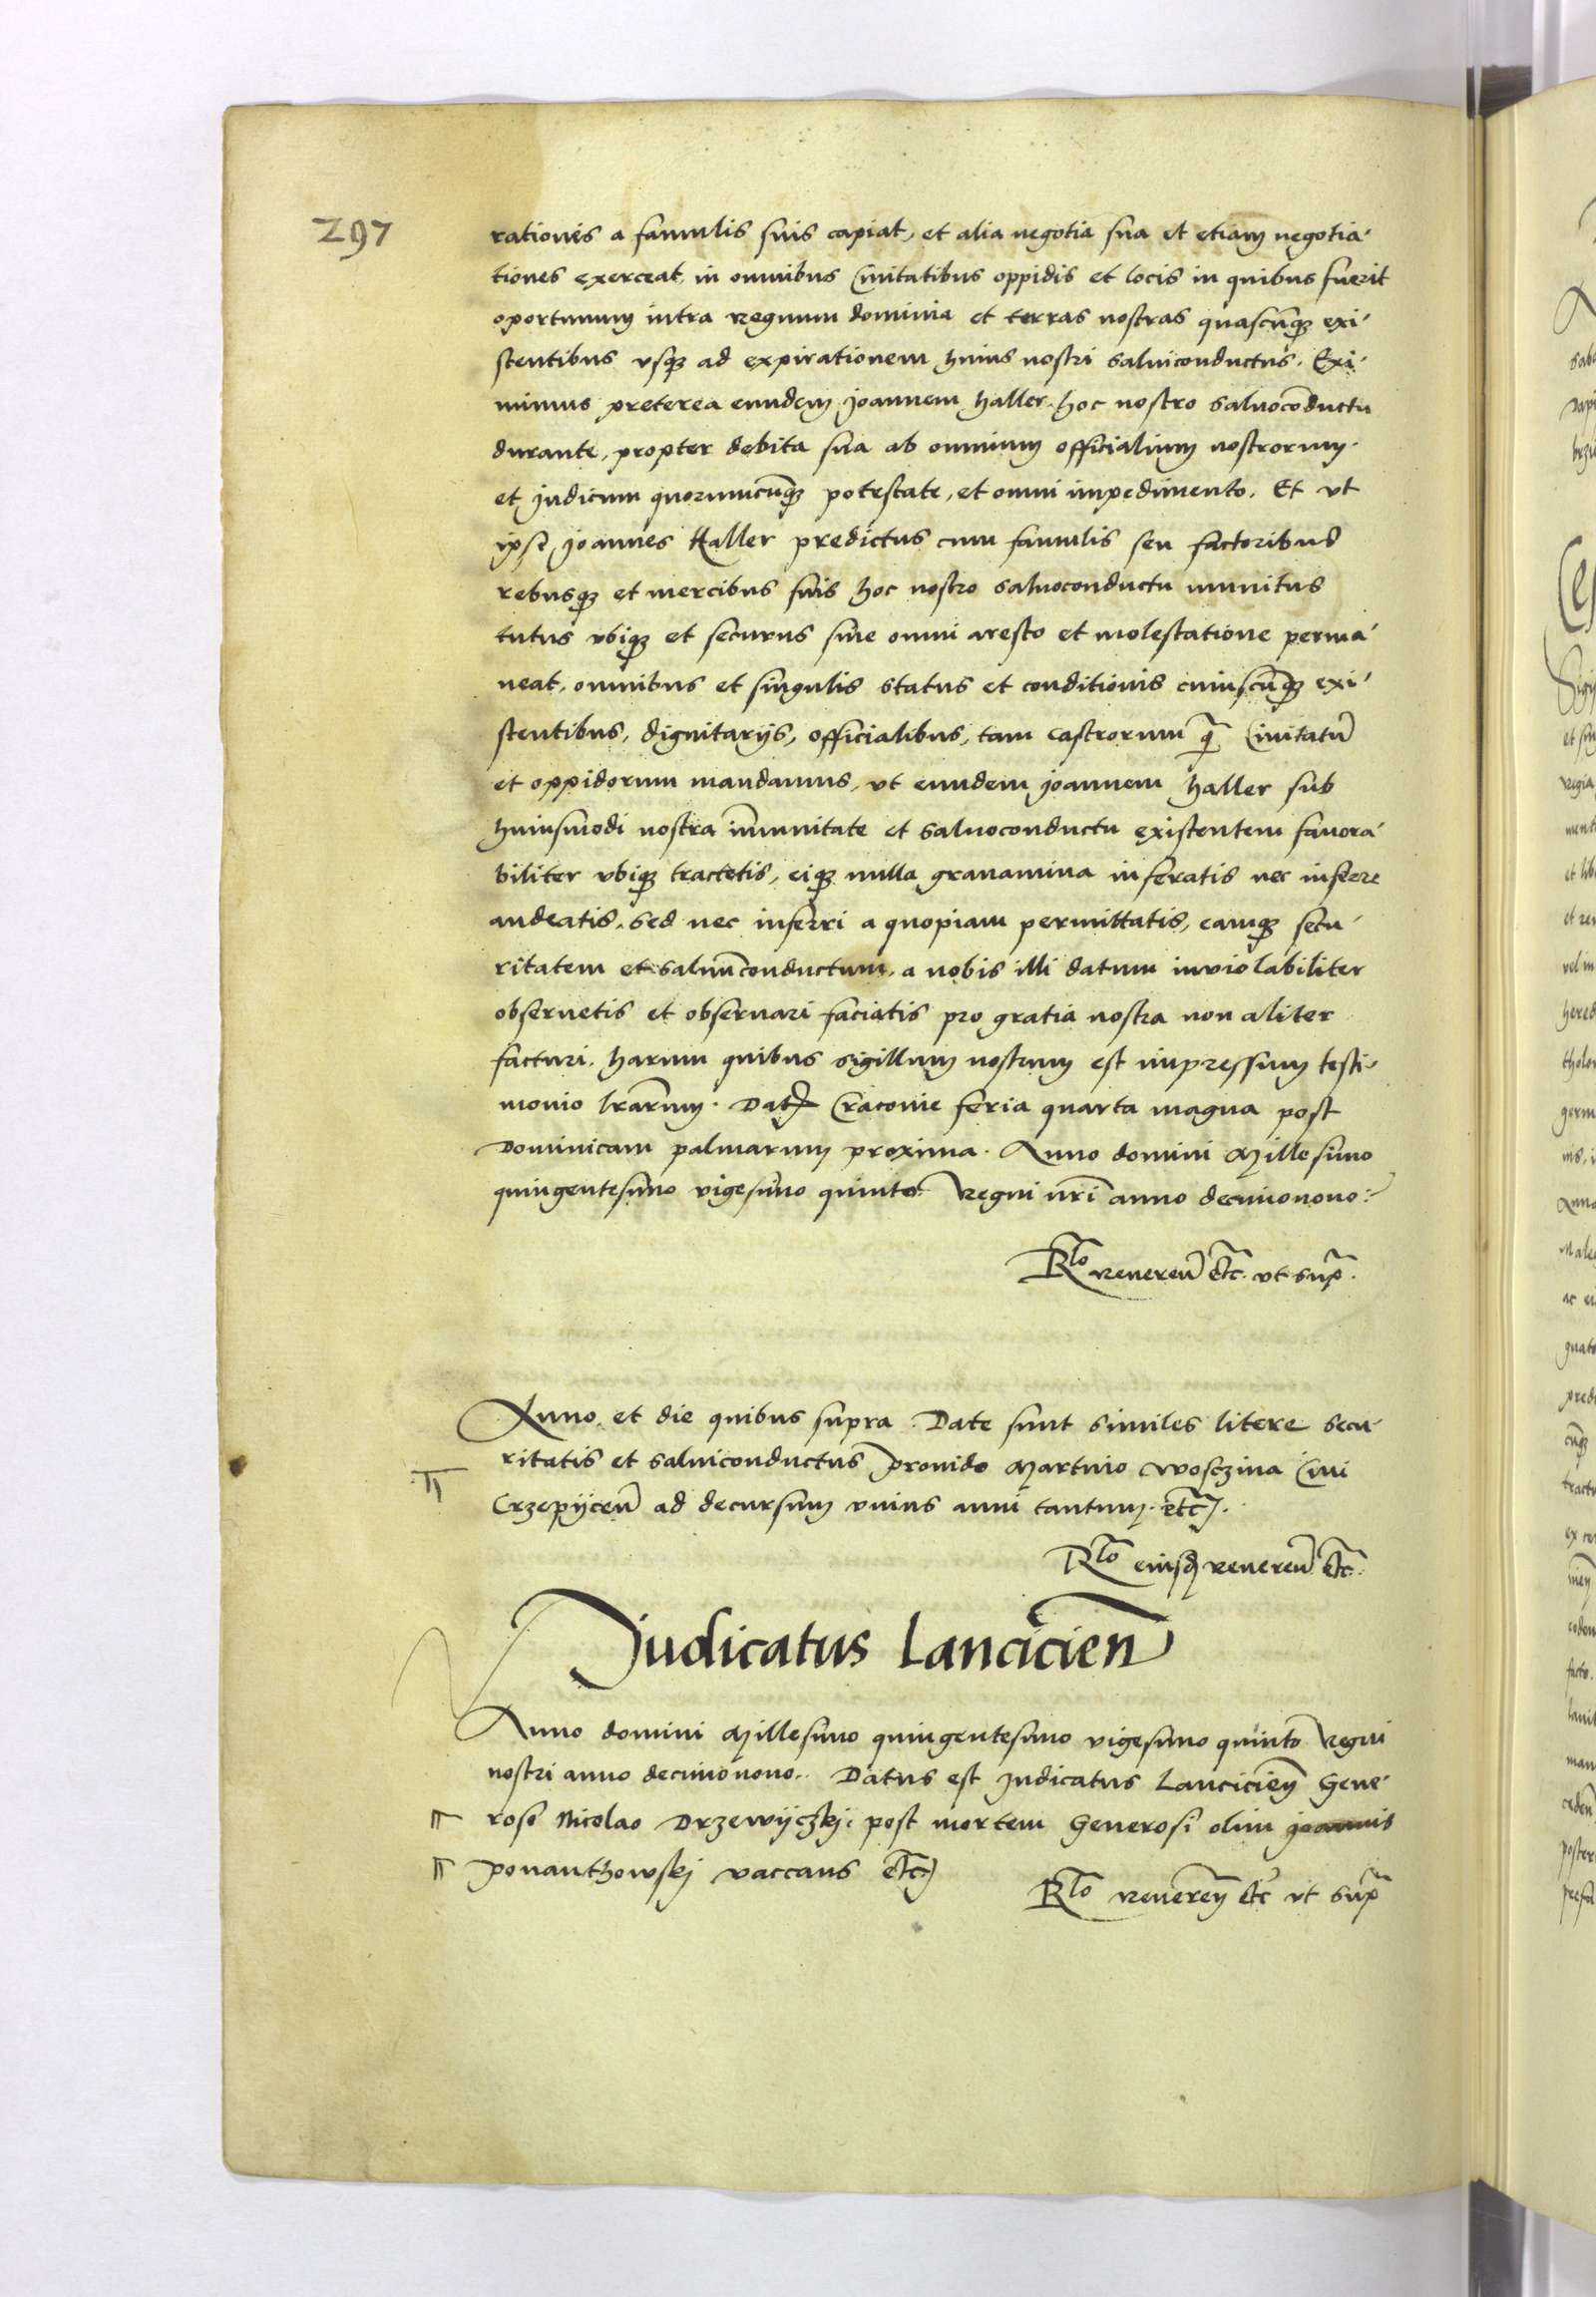 297
rationes a famulis suis capiat, et alia negotia sua et etiam negotia-
tiones exerceat, in omnibus Civitatibus oppidis et locis in quibus fuerit
oportunum intra regnum dominia et terras nostras quascunq; exi-
stentibus vsq; ad expirationem huius nostri saluiconductus. Exi-
mimus preterea eundem Joannem Haller hoc nostro saluoconductu
durante, propter debita sua ab omnium officialium nostrorum
et Judicum quorumcunq; potestate, et omni impedimento. Et vt
ipse Joannes Haller predictus cum famulis seu factoribus
rebusq; et mercibus suis hoc nostro saluoconductu munitus
tutus vbiq; et securus sine omni aresto et molestatione perma-
neat, omnibus et singulis status et conditionis cuiuscunq; exi-
stentibus, dignitarijs, officialibus, tam castrorum q̃ Ciuitatũ
et oppidorum mandamus, vt eundem Joannem Haller sub
huiusmodi nostra im̃unitate et saluoconductu existentem fauora-
biliter vbiq; tractetis, eiq; nulla grauamina inferatis nec inferre
audeatis, sed nec inferri a quopiam permittatis, eamq; secu-
ritatem et saluũconductum, a nobis illi datum inviolabiliter
obseruetis et obseruari faciatis pro gratia nostra non aliter
facturi. Harum quibus sigillum nostrum est impressum testi-
monio lrarum. Dat Cracouie feria quarta magna post
Dominicam palmarum proxima. Anno domini Millesimo
quingentesimo vigesimo quinto. Regni nrĩ anno decimonono.
Rlo reuereñ etc. vt sup̃.
Anno et die quibus supra. Date sunt similes litere secu-
ritatis et saluiconductus prouido Martino Wosczina Ciui
Crzepyceñ ad decursum vnius anni tantum. etc.
Rlo eiusd reuereñ etc.
Judicatus Lancicień
Anno domini Millesimo quingentesimo vigesimo quinto Regni
nostri anno decimonono. Datus est Judicatus Lanciciẽn Gene-
roso Nicolao Drzewyczkj. post mortem Generosi olim Joannis
ponanthowskj vaccans etc
Rlo reuereñ etc vt sup̃